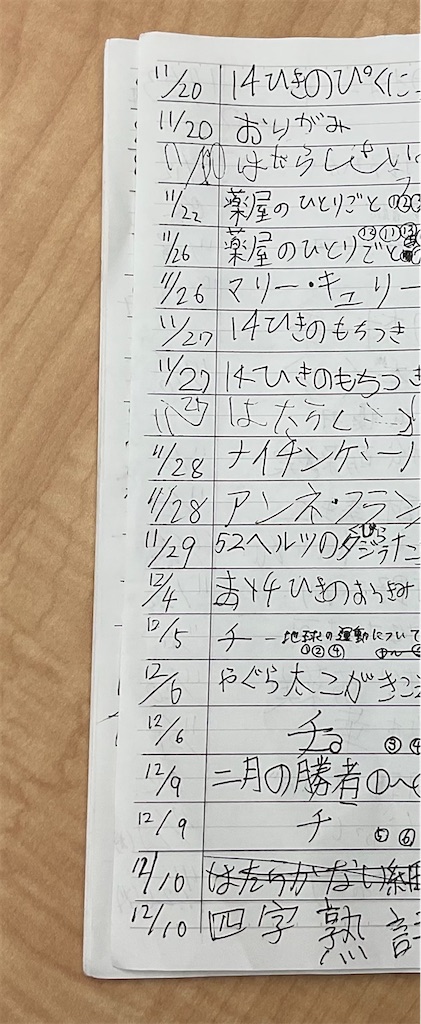 11/20 14ひきのぴくに
11/20 おりがみ
11/
11/22 薬屋のひとりごと ⑫
11/26 薬屋のひとりごと ⑬ ⑪
11/26 マリー・キュリー
11/27 14ひきのもちつき
11/27 14ひきのもちつき
11/27 はたらく
11/28 ナイチンゲー
11/28 アンネ・フラン
11/29 52ヘルツのクジラた
12/4 14ひきの
12/5 チ ー地球の運動について
①②④
12/6 やぐら太こがきこ
12/6 チ。 ③ ④
12/9 二月の勝者 ①〜
12/9 チ ⑤ ⑥
12/10 はたらかない細
12/10 四字熟語